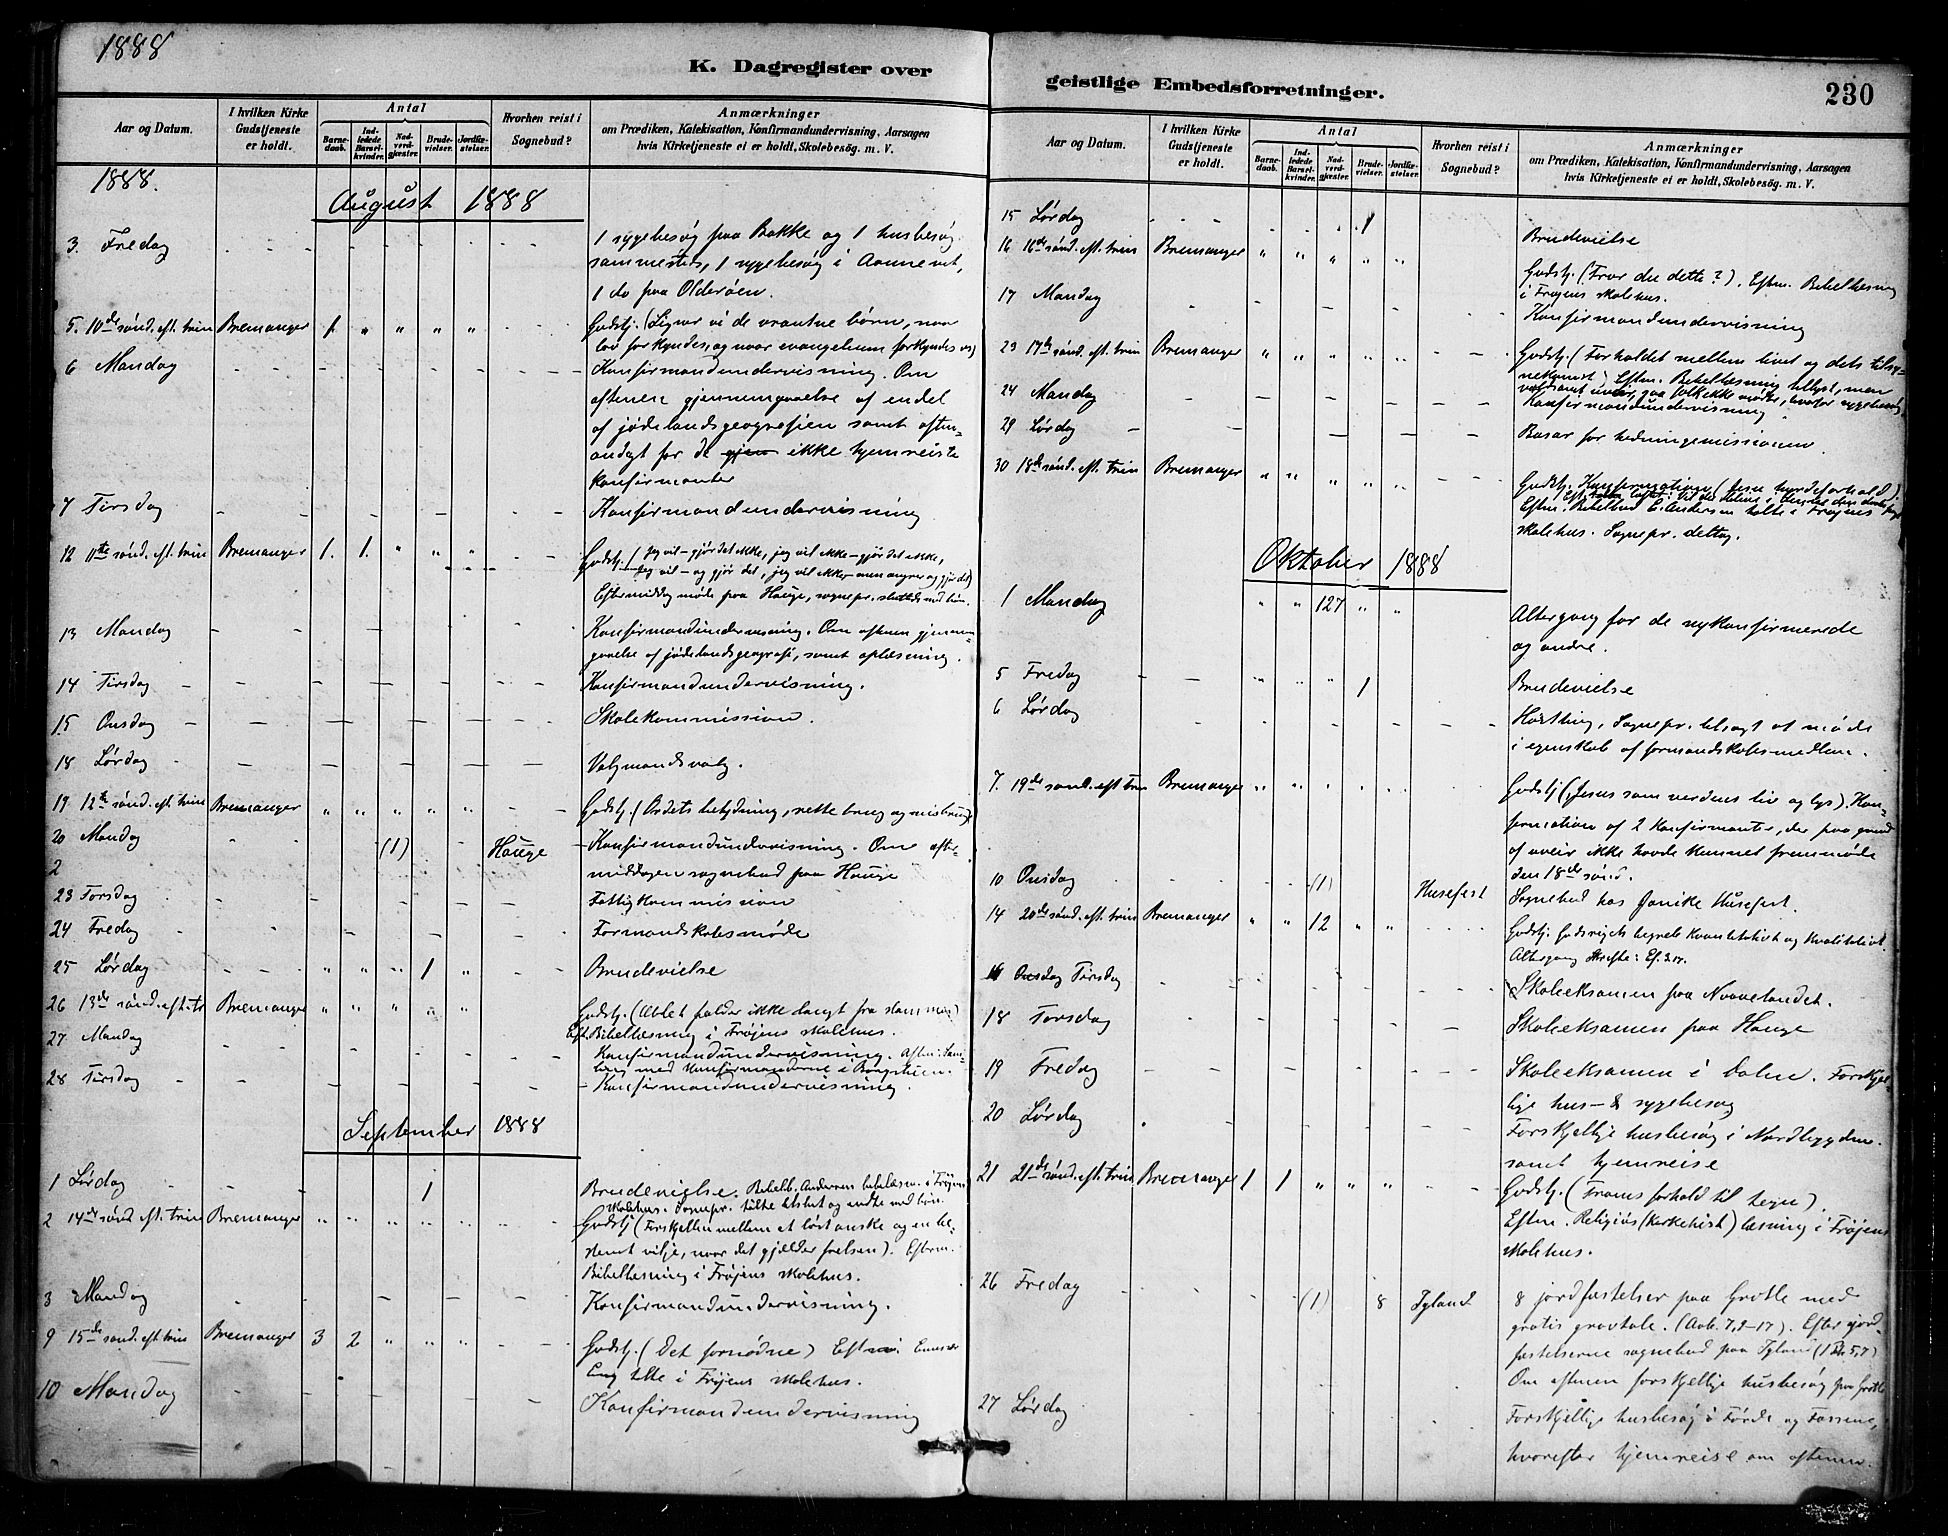 1888
K. Dagregister over
Aar og Datum.
I hvilken Kirke Gudstjeneste er holdt.
Antal
Barnedaab.
Indledede Barselkvinder.
Nadverdgjæster.
Brudevielser.
Jordfæstelser.
Hvorhen reist i Sognebud?
Anmærkninger
om Prædiken, Katekisation, Konfirmandundervisning, Aarsagen
hvis Kirketjeneste ei er holdt, Skolebesøg. m. V.
1888.
August 1888
3. Fredag 1 sygebesøg paa Bakke og 1 husbesøg
sammesteds, 1 sygebesøg i
1 do paa Olderøen.
5. 10de sønd. eft. trin Bremanger 1 " " " " Gudstj. (Ligner vi de vrantne børn, naar
lov forkyndes, og naar evangelium forkyndes os)
6 Mandag Konfirmandundervisning. Om
aftenen gjennemgaaelse af endel
af jødelandsgeografien samt aften-
andagt for de gjen ikke hjemreiste
konfirmanter
7 Tirsdag Konfirmandundervisning
12 11te sønd. eft. trin Bremanger 1. 1. " " " Gudstj. (Jeg vil – gjør det ikke, jeg vil ikke – gjør det ikke,
Jeg vil – og gjør det, jeg vil ikke – men angrer og gjør det)
Eftermiddag møde paa Hauge, sognepr. sluttede med bøn.
13 Mandag Konfirmandundervisning. Om aftenen gjennem-
gaaelse af jødelandsgeografi, samt oplæsning.
14 Tirsdag Konfirmandundervisning.
15 Onsdag Skolekommission.
18 Lørdag Valgmandsvalg.
19 12te sønd. eft. trin Bremanger " " " " " Gudstj. (Ordets betydning, rette brug og misbrug)
20 Mandag (1) Hauge Konfirmandundervisning. Om efter-
2
middagen sognebud paa Hauge
23 Torsdag Fattigkommission
24 Fredag Formandskabsmøde
25 Lørdag " " " 1 " Brudevielse
26 13de sønd. eft. tr Bremanger " " " " " Gudstj. (Æblet falder ikke langt fra stammen)
Eft. Bibellæsning i Frøjens skolehus.
27 Mandag Konfirmandundervisning. Aften: Sam-
med konfirmanderne i
28 Tirsdag Konfirmandundervisning.
September 1888
1 Lørdag 1 Brudevielse. Bibelb. Andersen bibellæsn. i Frøjens
skolehus. Sognepr. talte tilslut og endte med bøn.
2 14de sønd. eft. trin Bremanger " " " " " Gudstj (Forskjellen mellem et løst ønske og en be-
stemt vilje, naar det gjælder frelsen). Efterm.
Bibellæsning i Frøjens skolehus.
3 Mandag Konfirmandundervisning.
9 15de sønd. eft. trin Bremanger 3 2 " " " Gudstj. (Det fornødne) Eftm:
talte i Frøjens skolehus.
10 Mandag Konfirmandundervisning
geistlige Embedsforretninger.
230
Aar og Datum.
I hvilken Kirke Gudstjeneste er holdt.
Antal
Barnedaab.
Indledede Barselkvinder.
Nadverdgjæster.
Brudevielser.
Jordfæstelser.
Hvorhen reist i Sognebud?
Anmærkninger
om Prædiken, Katekisation, Konfirmandundervisning, Aarsagen
hvis Kirketjeneste ei er holdt, Skolebesøg. m. V.
15 Lørdag 1 Brudevielse
16 16de sønd. eft. trin Bremanger " " " " " Gudstj. (Tror du dette?). Eftm. Bibellæsning
i Frøjens skolehus.
17 Mandag Konfirmandundervisning
23 17de sønd. eft. trin Bremanger " " " " " Gudstj. (Forholdet mellem livet og dets tilsy-
nekomst) Eftm. Bibellæsning tillyst, men
24 Mandag Konfirmandundervisning
29 Lørdag Basar for hedningemissionen
30 18de sønd. eft. trin Bremanger " " " " " Gudstj. Konfirmation (Jesu hyrdeforhold).
Eftm. Bibelbud E. Andersen talte i Frøjens
skolehus. Sognepr. deltog.
Oktober 1888
1 Mandag " " 127 " " Altergang for de nykonfirmerede
og andre.
5 Fredag " " " 1 Brudevielse
6 Lørdag Høstting, Sognepr. tilsagt at møde
i egenskab af formandskabsmedlem.
7. 19de sønd. eft trin Bremanger " " " " " Gudstj (Jesus som verdens liv og lys). Kon-
firmation af 2 konfirmanter, der paa grund
af uveir ikke havde kunnet fremmøde
den 18de sønd.
10 Onsdag (1) Husefest Sognebud hos Janike Husefest.
14 20de sønd. eft. trin Bremanger " " 12 " " Gudstj. Gudsrigets begreb kvantitativt og kvalitativt.
Altergang Skrifte: Ef.
16 Onsdag Tirsdag Skoleeksamen paa
18 Torsdag Skoleeksamen paa Hauge
19 Fredag Skoleeksamen i Dalen. Forskjel-
lige hus- & sygebesøg
20 Lørdag Forskjellige husbesøg i Nordbygden
samt hjemreise
21 21de sønd. eft. trin Bremanger 1 1 " " " Gudstj. (Troens forhold til tegn).
Eftm. Religiøs (kirkehist) læsning i Frøjens
skolehus.
26 Fredag (1) 8 Igland 8 jordfæstelser paa Grotle med
gratis gravtale. (Aab. 7, 9–17). Efter jord-
fæstelserne sognebud paa Igland (1 Pt. 5,7)
Om aftenen forskjellige husbesøg paa Grotle
27 Lørdag Forskjellige husbesøg i Førde og Fossene,
hvorefter hjemreise om aftenen.